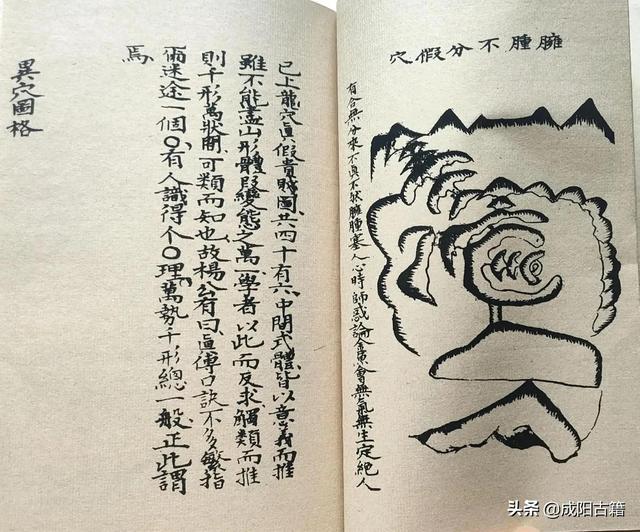 臃腫不分假穴
有合無分來不真不狀臃腫塞人心時師惑論金魚會無氣無生定絕人
已上龍穴真假貴賤圖共四十有六中間式體皆以意義而推
雖不能盡山形體段變態之萬一學者以此而反求觸類而推
則千形萬狀可類而知也故楊公有曰真傳口訣不多繁指
爾迷途一個〇有人識得个〇理萬勢千形總一般正此謂
焉
異穴圖格
头条 @成阳古籍